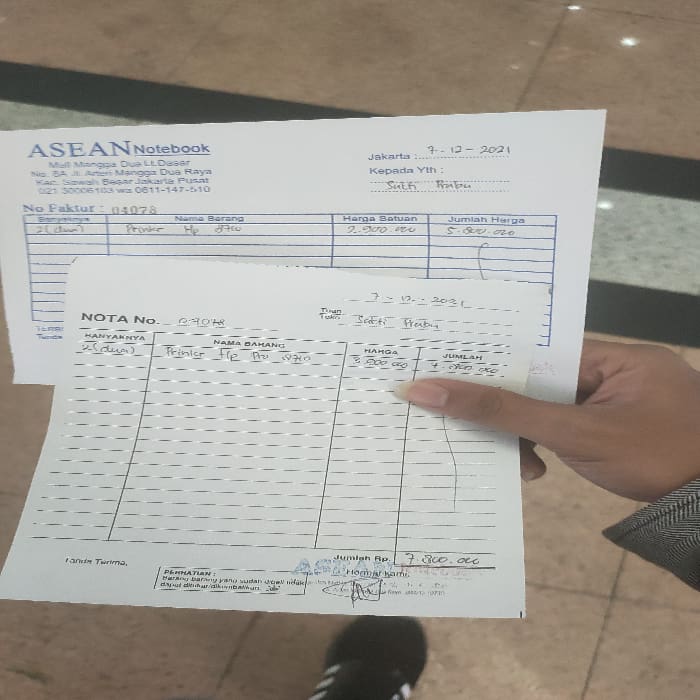 ASEAN Notebook
Mall Mangga Dua Lt.Dasar
No. 8A Jl. Arteri Mangga Dua Raya
Kec. Sawah Besar Jakarta Pusat
021 30006103 wa 0811-147-510
Jakarta : 7-12-2021
Kepada Yth :
Sakti Prabu
No Faktur : 04078
Banyaknya Nama Barang Harga Satuan Jumlah Harga
2 (dua) Printer Hp 8710 2.900.000 5.800.000
7-12-2021
NOTA No. 04078
Tuan
Toko
Sakti Prabu
BANYAKNYA NAMA BARANG HARGA JUMLAH
2 (dua) Printer Hp Pro 8710 3.900.000
Jumlah Rp. 7.800.000
Tanda Terima,
PERHATIAN :
Barang-barang yang sudah dibeli tidak
dapat ditukar/dikembalikan.
Hormat kami,